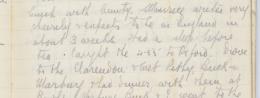 lunch with Aunty. Maurice writes very
cheerily & expects to be in England in
about 3 weeks. Had a sleep before
tea. Caught the 4.55 to Oxford. Drove
to the Clarendon & met Kitty
Marbury & had dinner with them at
& went to the